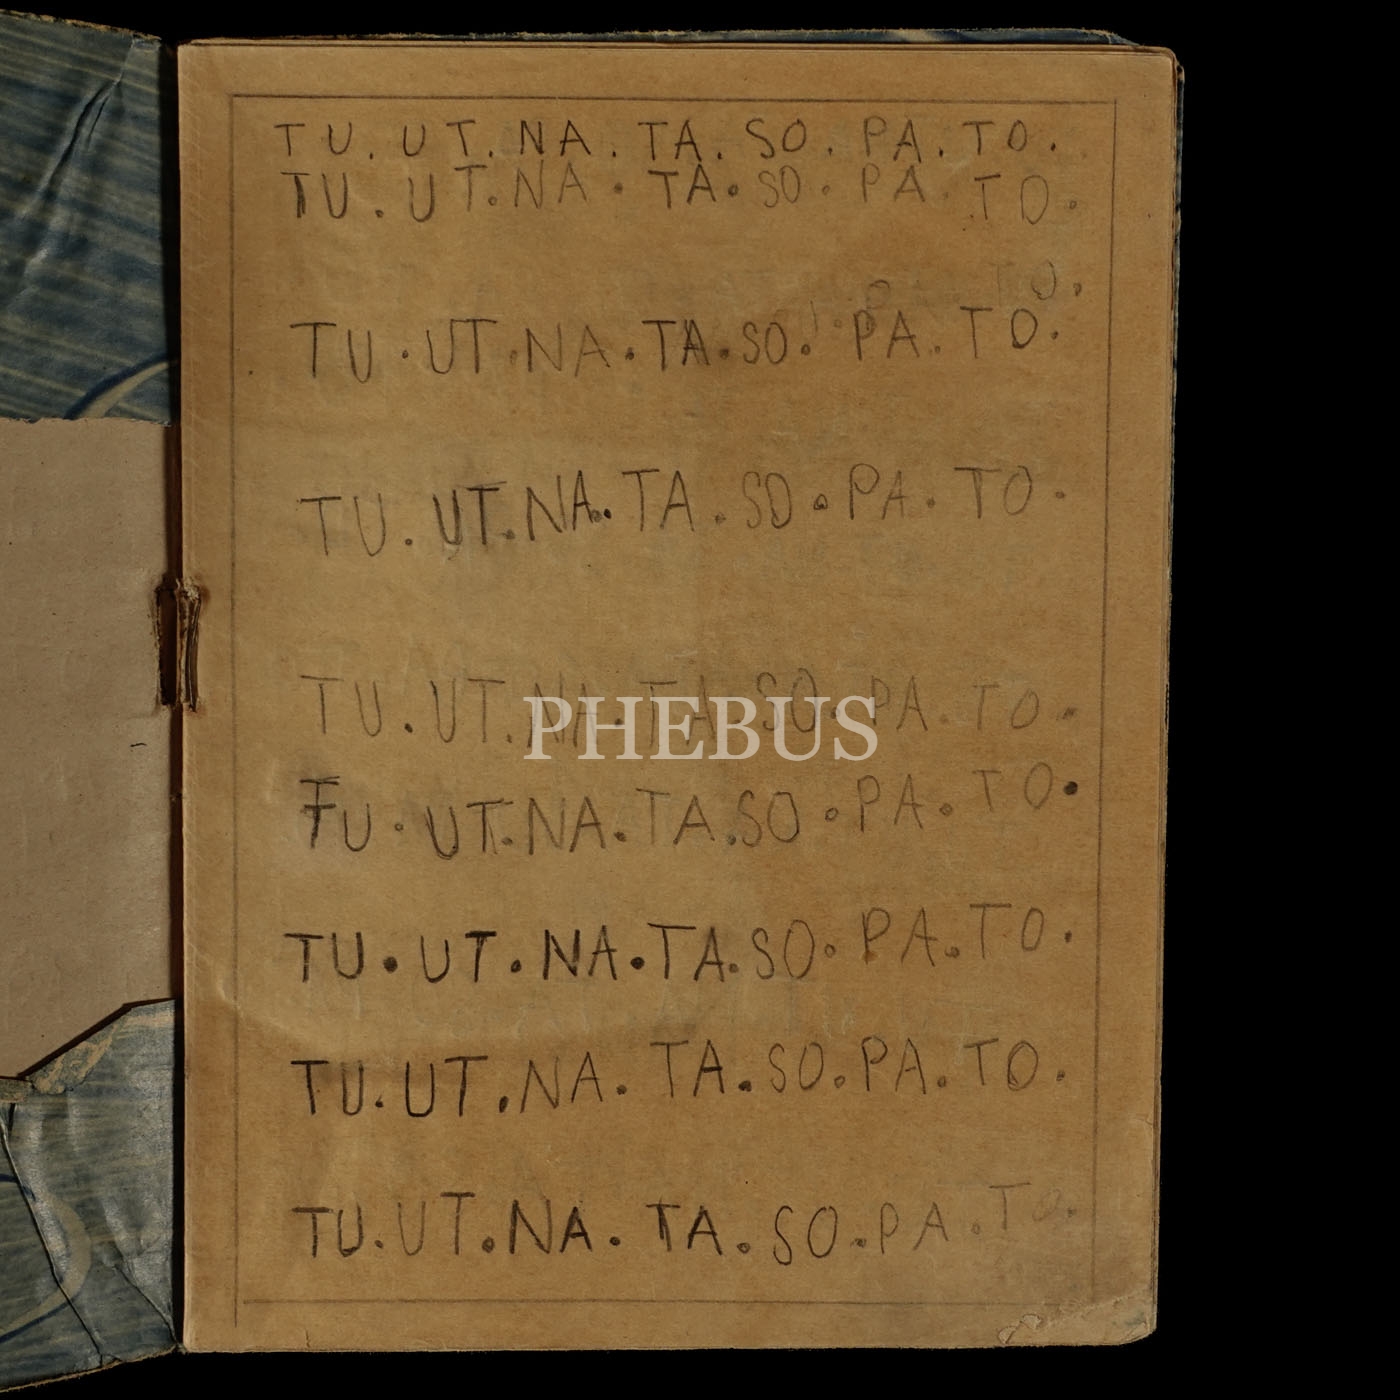 TU. UT. NA. TA. SO. PA. TO.
TU. UT. NA. TA. SO. PA. TO.
TO.
TU. UT. NA. TA. SO. PA. TO.
TU. UT. NA. TA. SO. PA. TO.
TU. UT. NA. TA. SO. PA. TO.
PHEBUS
TU. UT. NA. TA. SO. PA. TO.
TU. UT. NA. TA. SO. PA. TO.
TU. UT. NA. TA. SO. PA. TO.
TU. UT. NA. TA. SO. PA. TO.